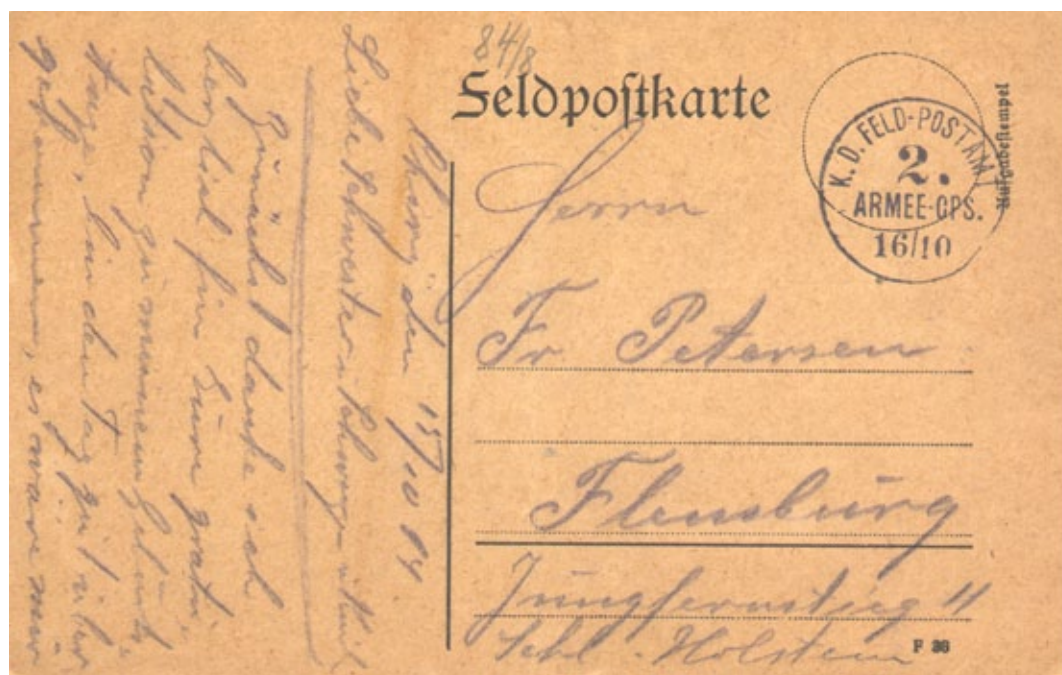 84/8
Feldpostkarte
K. D. FELD-POSTAMT
2.
ARMEE-CPS.
16/10
Aufgabestempel
Herrn
Fr. Petersen
Flensburg
Jungfernstieg 11
Schl. Holstein
F 36
den 15/10 04
Liebe Schwester Schwager
Zunächst danke ich
herzlist für Eure gratu-
lutsion zu meinem Geburts-
tage, bin den Tag gut über
gekommen, es wäre mir